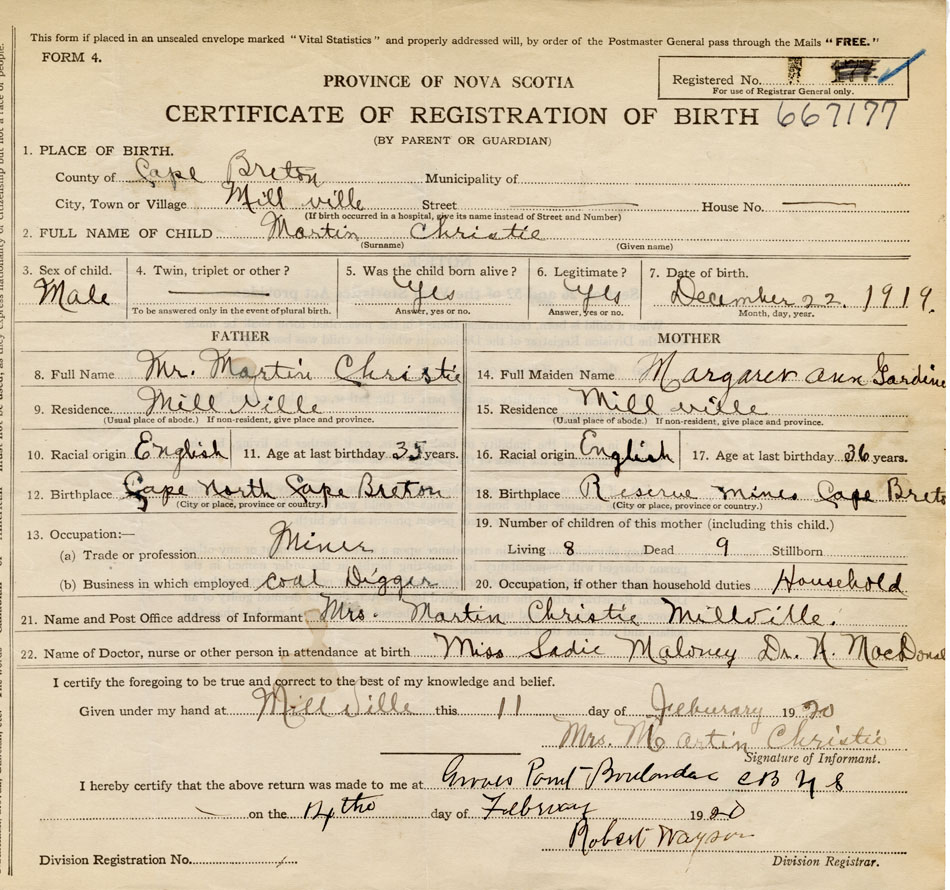 This form if placed in an unsealed envelope marked "Vital Statistics" and properly addressed will, by order of the Postmaster General pass through the Mails "FREE."
FORM 4.
PROVINCE OF NOVA SCOTIA
Registered No.
For use of Registrar General only.
CERTIFICATE OF REGISTRATION OF BIRTH 667177
(BY PARENT OR GUARDIAN)
1. PLACE OF BIRTH.
County of Cape Breton Municipality of
City, Town or Village Mill ville Street House No.
(If birth occurred in a hospital, give its name instead of Street and Number)
2. FULL NAME OF CHILD Martin Christie
(Surname) (Given name)
3. Sex of child. 4. Twin, triplet or other? 5. Was the child born alive? 6. Legitimate? 7. Date of birth.
Male Yes Yes December 22. 1919.
To be answered only in the event of plural birth. Answer, yes or no. Answer, yes or no. Month, day, year.
FATHER MOTHER
8. Full Name Mr. Martin Christie 14. Full Maiden Name Margaret ann Jardine
9. Residence Mill ville 15. Residence Mill ville
(Usual place of abode.) If non-resident, give place and province. (Usual place of abode.) If non-resident, give place and province.
10. Racial origin English 11. Age at last birthday 35 years. 16. Racial origin English 17. Age at last birthday 36 years.
12. Birthplace Cape North Cape Breton 18. Birthplace Reserve mines Cape Breto
(City or place, province or country.) (City or place, province or country.)
13. Occupation:— 19. Number of children of this mother (including this child.)
(a) Trade or profession Miner Living 8 Dead 9 Stillborn
(b) Business in which employed coal Digger 20. Occupation, if other than household duties Household
21. Name and Post Office address of Informant Mrs. Martin Christie Millville.
22. Name of Doctor, nurse or other person in attendance at birth Miss Sadie Maloney Dr. H. MacDonal
I certify the foregoing to be true and correct to the best of my knowledge and belief.
Given under my hand at Mill ville this 11 day of Jeburary 1920
Mrs. Martin Christie
Signature of Informant.
I hereby certify that the above return was made to me at Groves Point
on the 14 th day of 1920
Robert Wayson
Division Registration No. Division Registrar.